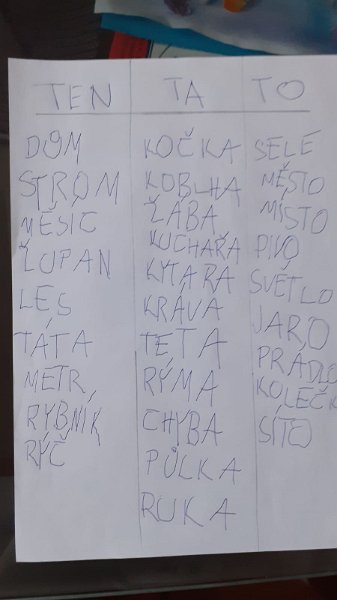 TEN
DOM
STROM
MĚSIC
ŽUPAN
LES
TÁTA
METR
RYBNÍK
RÝČ
TA
KOČKA
KOBLHA
ŽÁBA
KUCHAŘA
KYTARA
KRÁVA
TETA
RÝMA
CHYBA
PŮLKA
RUKA
TO
SELE
MĚSTO
MÍSTO
PIVO
SVĚTLO
JARO
PRÁDLO
KOLEČK
SÍTO